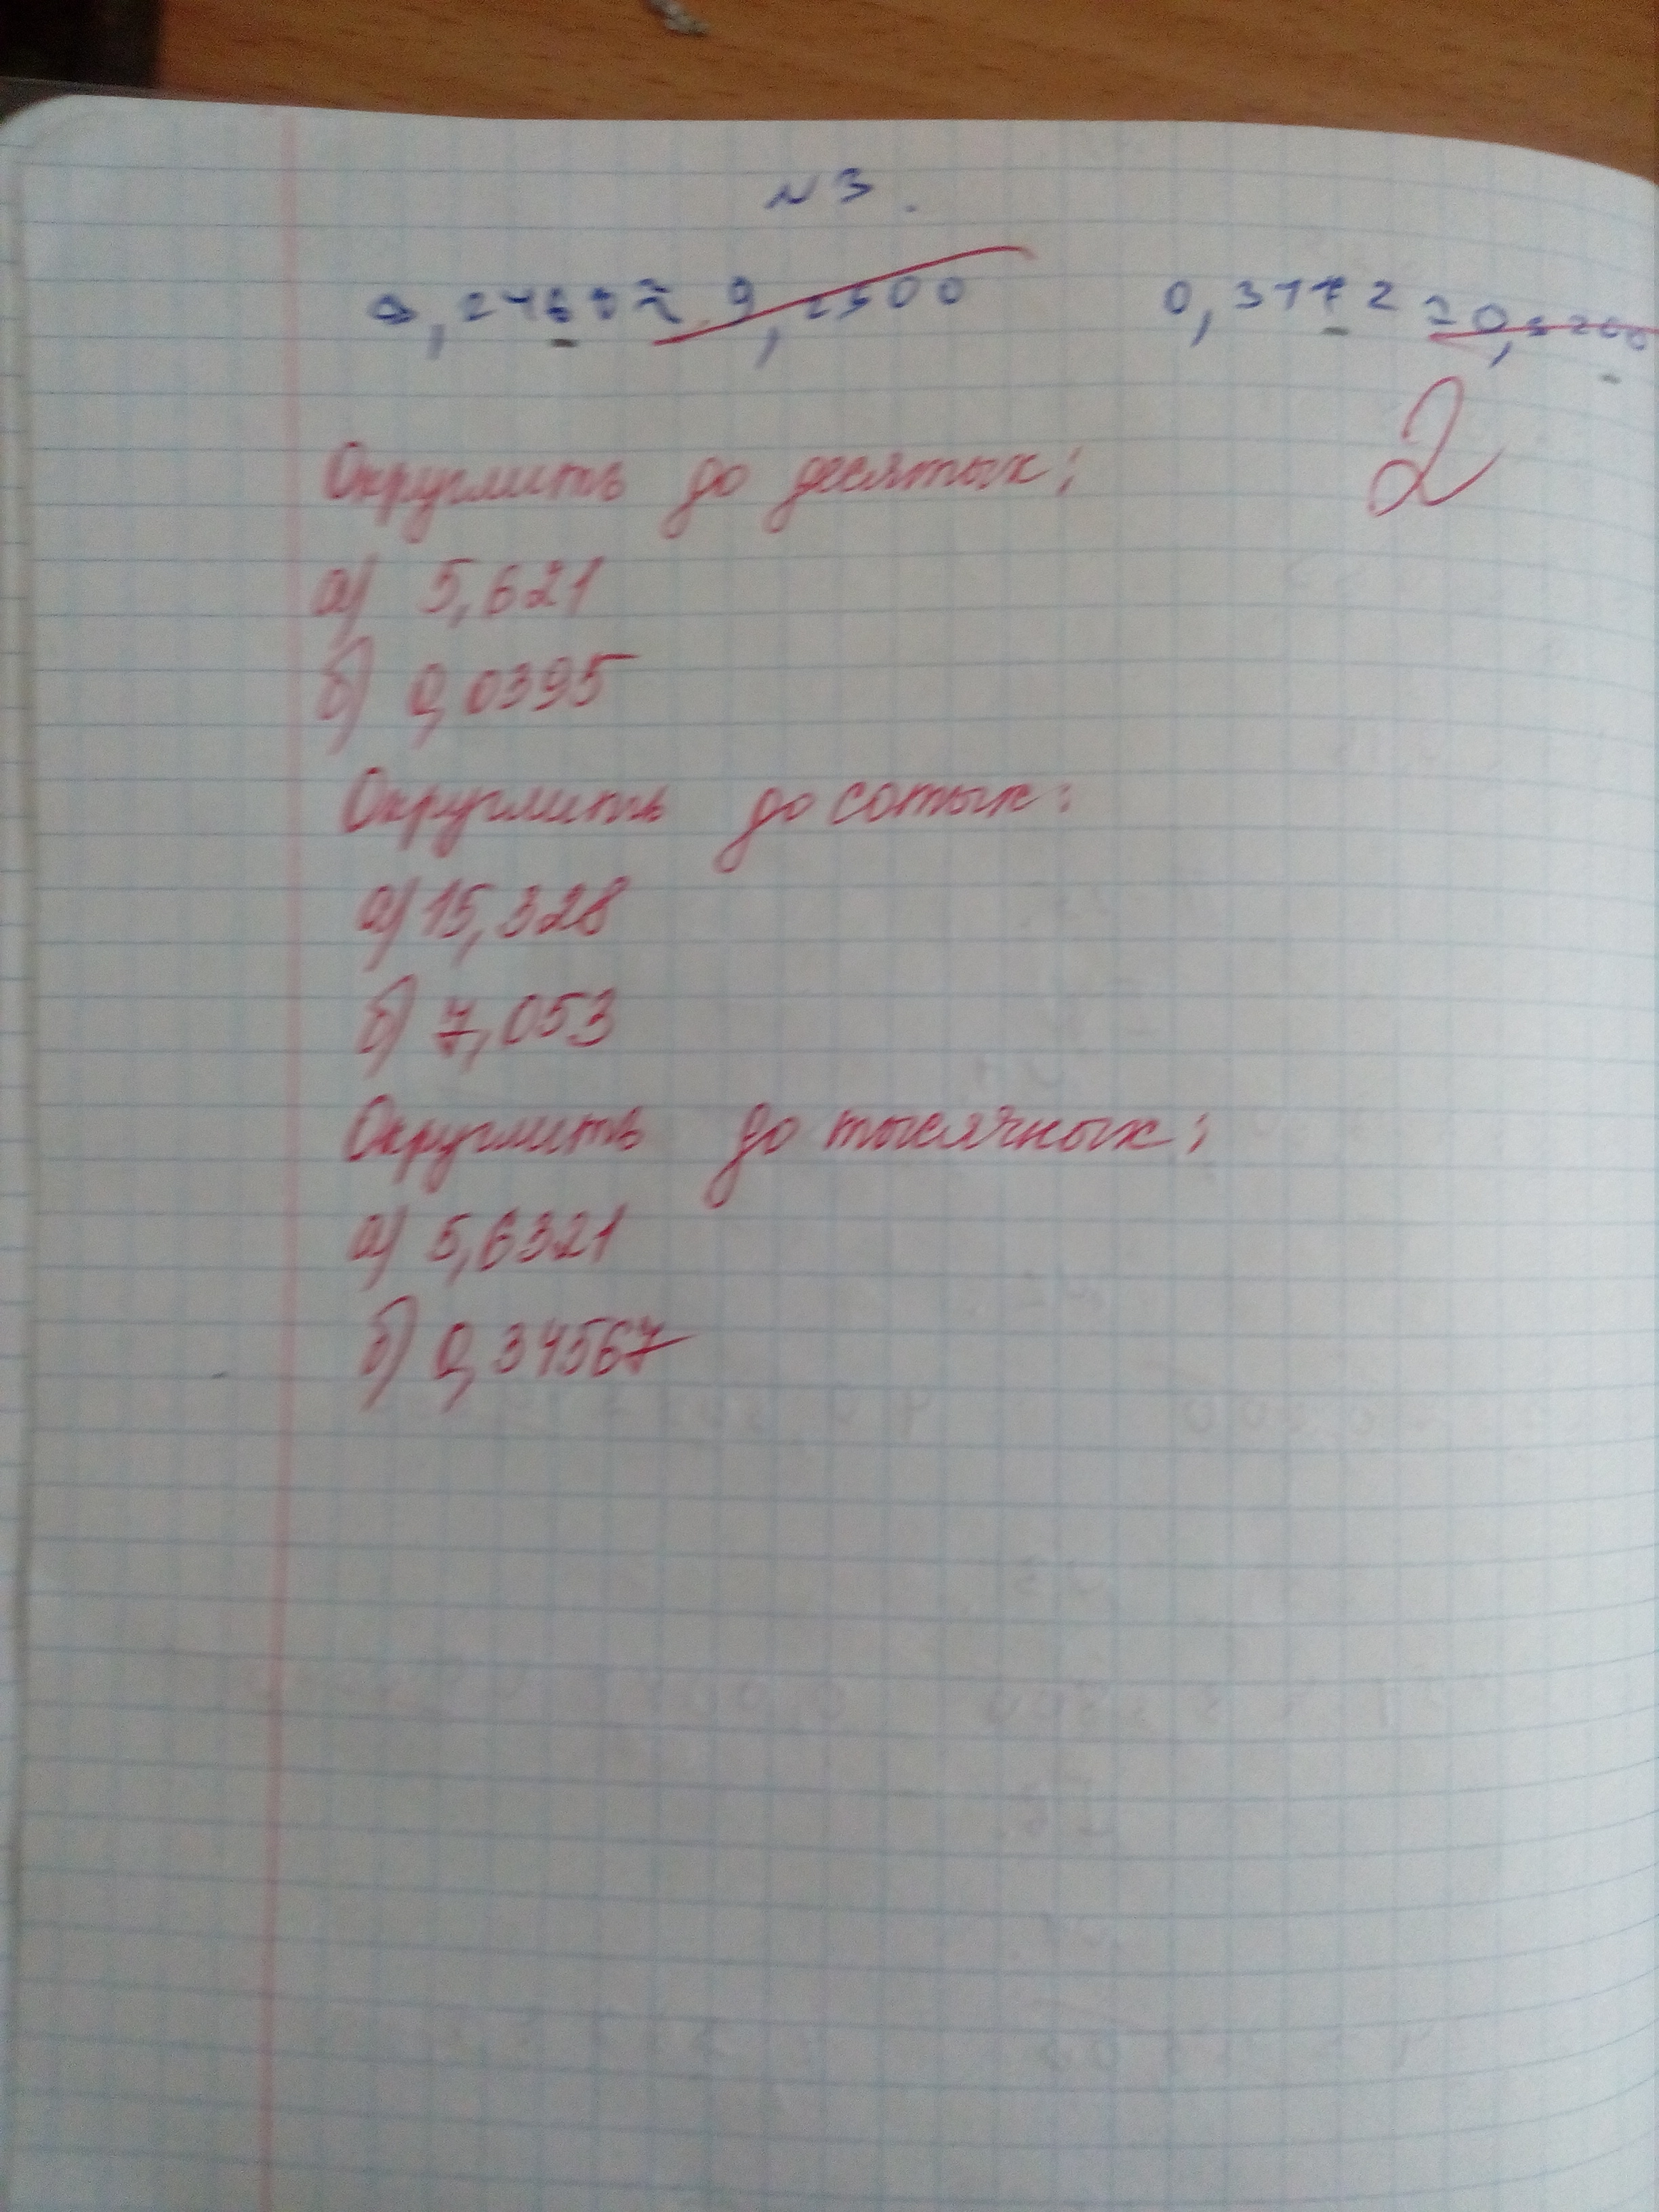 N3.
9,2500 0,3172
2
Округлить до десятых:
а) 5,621
б) 0,0395
Округлить до сотых:
а) 15,328
б) 7,053
Округлить до тысячных:
а) 5,6321
б) 0,34567